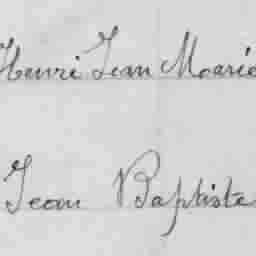 Henri Jean Marie
Jean Baptiste